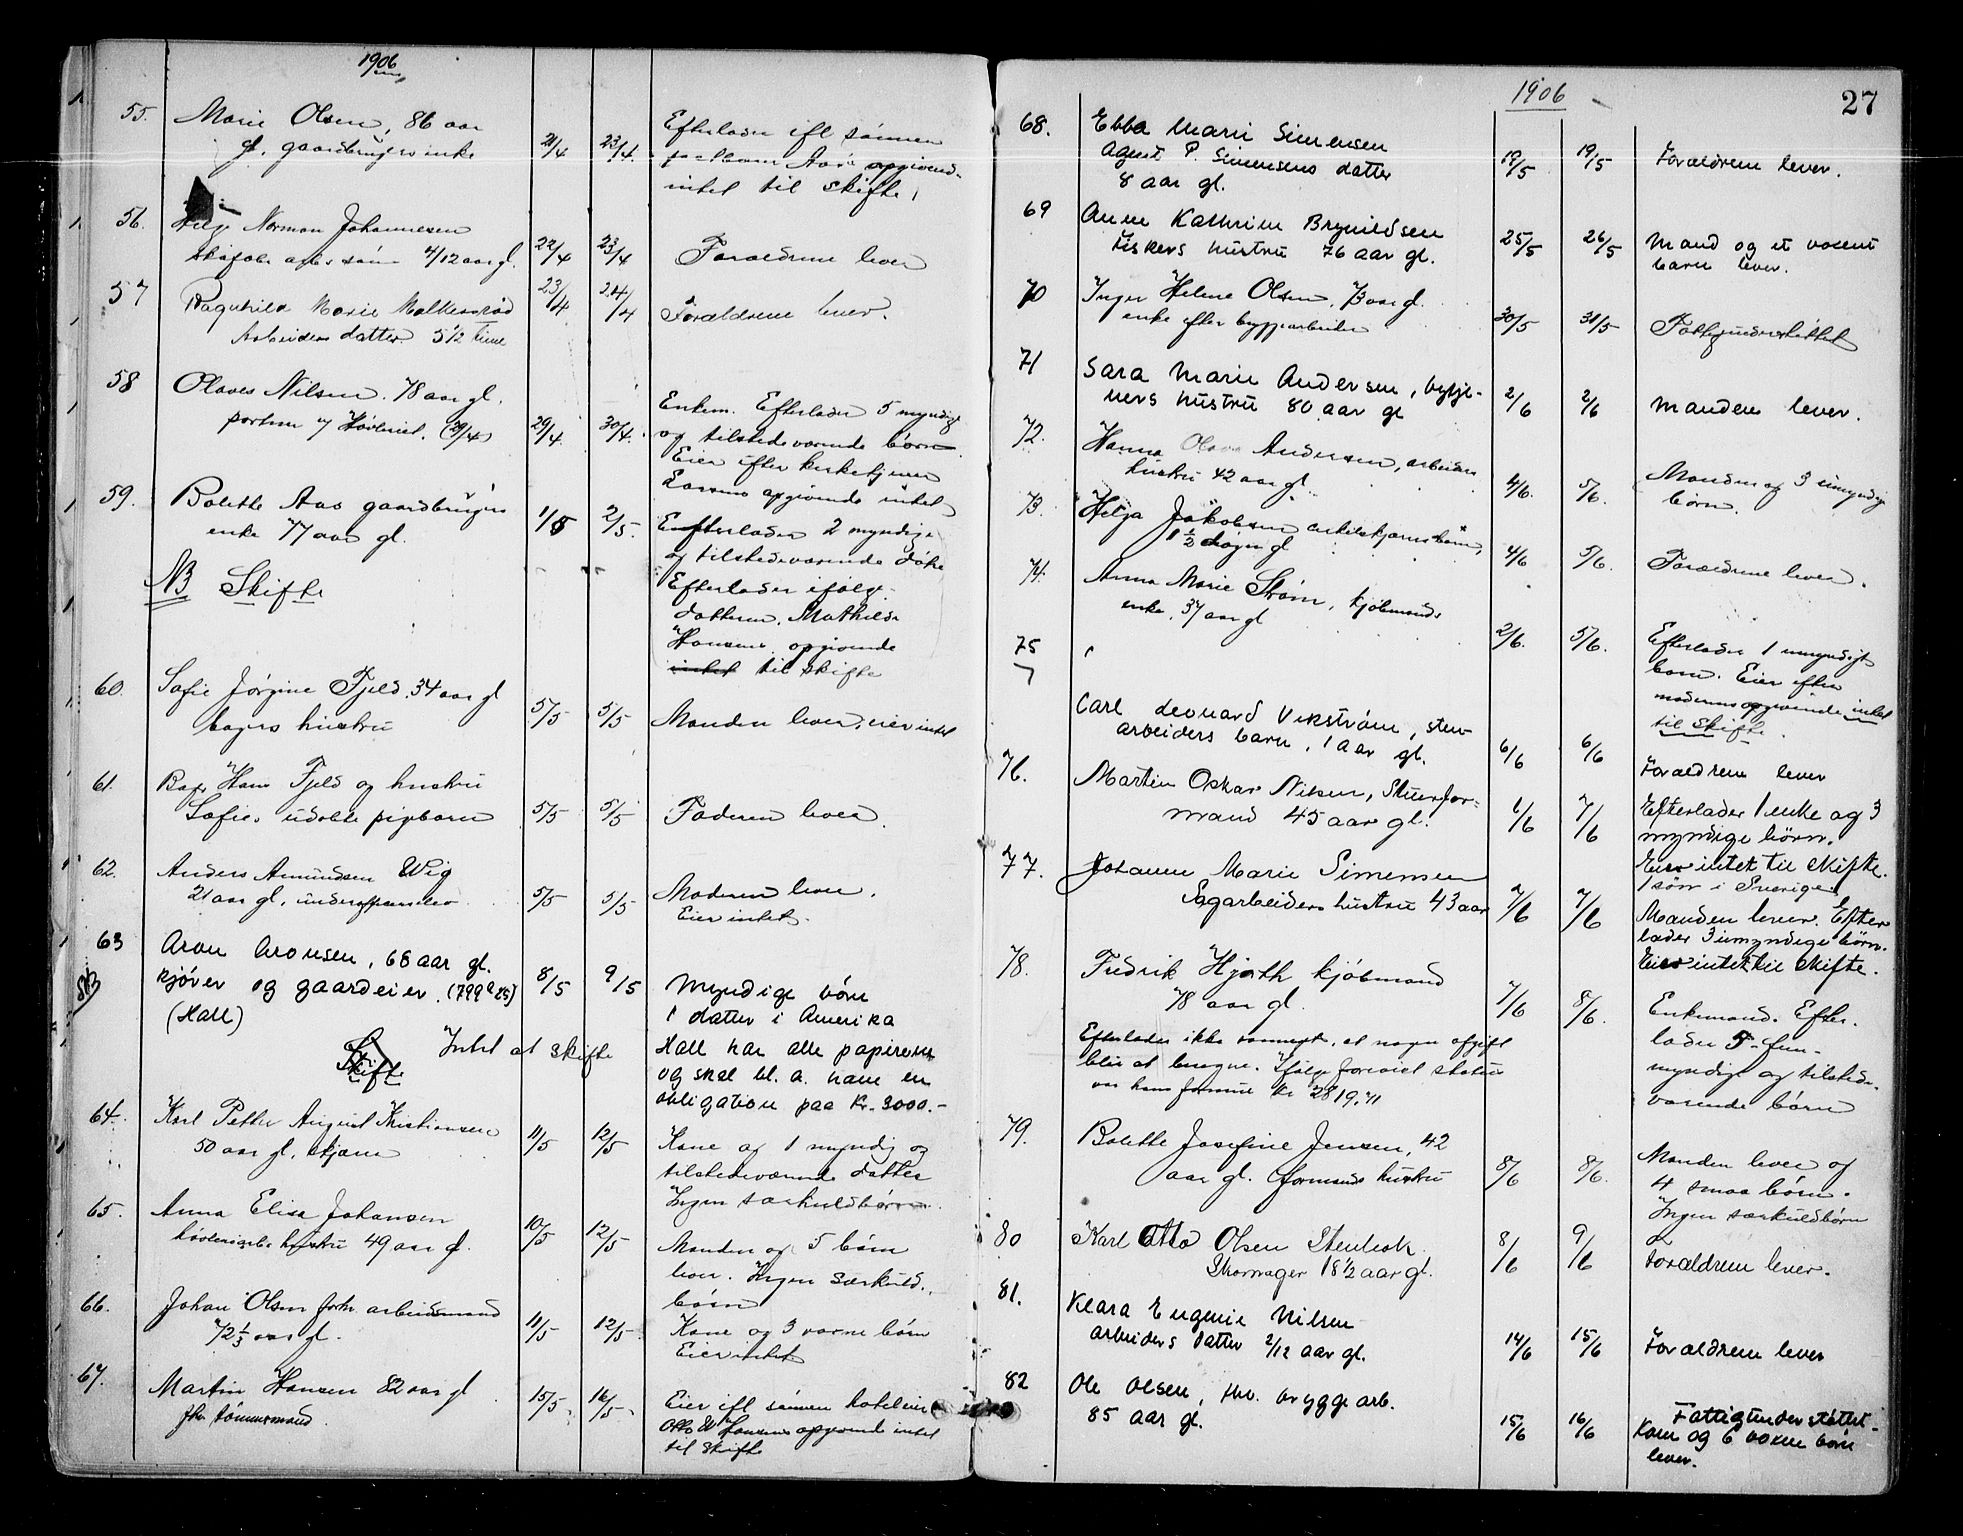 1906
55. Marie Olsen, 86 aar
gl. gaardbrugers enke 21/4 23/4.
Efterlader ifl sønnen
Aas opgivend.
intet til skifte,
56. Helge Norman Johannesen
søn 4/12 aar gl. 22/4 23/4 Forældrene lever
57 Ragnhild Marie
Arbeiders datter 5 1/2 time 23/4 24/4 Forældrene lever.
58 Olaves Nilsen. 78 aar gl.
portner (29/4) 29/4. 30/4.
Enkem. Efterlader 5 myndige
og tilstedeværende børn
Eier efter kirketjener
Larsens opgivende intet
59. Bolette Aas gaardbrugers
enke 77 aar gl. 1/5 2/5.
Efterlader 2 myndige
og tilstedeværende døtre
NB Skifte
Efterlader ifølge
datteren, Mathilde
Hansens opgivende
intet til skifte
60. Sofie Jørgine Fjeld. 34 aar gl
bagers hustru 5/5 5/5 Manden lever, eier intet
61. Bager Hans Fjeld og hustru
Sofies udøbte pigebarn 5/5 5/5 Faderen lever.
62. Anders Amundsen Wig
21 aar gl. 5/5 5/5 Moderen lever.
Eier intet.
63 Aron Aronsen, 68 aar gl.
kjører og gaardeier. (799 a 25) 8/5 9/5 Myndige børn
(Hall) 1 datter i Amerika
Skifte Intet at skifte Hall har alle papirerne
og skal bl. a. have en
obligation paa Kr. 3000.-
64. Karl Petter August Kristiansen
50 aar gl. 11/5 12/5 Kone og 1 myndig og
tilstedeværende datter
Ingen særkuldbørn.
65. Anna Elise Johansen
høvleriarb. hustru 49 aar gl. 10/5 12/5 Manden og 5 børn
lever. Ingen særkuld.
børn
66. Johan Olsen forh. arbeidsmand
72 1/3 aar gl. 11/5 12/5. Kone og 3 voxne børn
Eier intet
67. Martin Hansen 82 aar gl
fhv. tømmermand. 15/5. 16/5. Eier ifl sønnen hoteleier
Otto H Hansens opgivende intet
til Skifte
1906 27
68. Ebba Marie Simensen
Agent P. Simensens datter
8 aar gl. 19/5 19/5 Forældrene lever.
69 Anne Kathrine Brynildsen
fiskers hustru 76 aar gl. 25/5 26/5 Mand og et voxent
barn lever.
70 Inger Helene Olsen, 73 aar gl.
enke efter bryggearbeider 30/5 31/5 Fattigunderstøttet
71 Sara Marie Andersen,
hustru 80 aar gl 2/6 2/6 Manden lever.
72. Hanna Olava Andersen, arbeiders
hustru 42 aar gl. 4/6. 5/6. Manden og 3 umyndige
børn.
73. Helga Jakobsen
1 1/2 døgn gl 4/6 5/6. Forældrene lever.
74. Anna Marie Strøm, kjøbmands
enke, 37 aar gl 2/6. 5/6. Efterlader 1 umyndigt
barn. Eier efter
moderens opgivende intet
til skifte.
75
Carl Leonard Vikstrøm, sten-
arbeiders barn, 1 aar gl. 6/6 6/6 Forældrene lever
76. Martin Oskar Nilsen, Stuerfor-
mand 45 aar gl. 6/6 7/6 Efterlader 1 enke og 3
myndige børn.
Eier intet til skifte.
1 søn i Sverige
77. Johanne Marie Simensen
Sagarbeiders hustru 43 aar 7/6 7/6 Manden lever. Efter
lader 3 umyndige børn.
Eier intet til skifte.
78. Fredrik Hjorth kjøbmand
78 aar gl. 7/6 8/6. Enkemand. Efter.
lader 5
myndige og tilstede-
værende børn
Efterlader ikke saameget, at nogen afgift
blir at beregne. Ifølge forevist status
var hans formue kr 2819.71
79. Bolette Josefine Jensen, 42
aar gl. formands hustru 8/6 8/6. Manden lever og
4 smaa børn.
Ingen særkuldbørn
80 Karl Otto Olsen Stenbæk
Skomager 18 1/2 aar gl. 8/6 9/6 Forældrene lever.
81. Klara Eugenie Nilsen
arbeiders datter 2/12 aar gl. 14/6 15/6 Forældrene lever
82 Ole Olsen, fhv. brygge arb.
85 aar gl. 15/6 16/6 Fattigunderstøttet.
Kone og 6 voxne børn
lever.